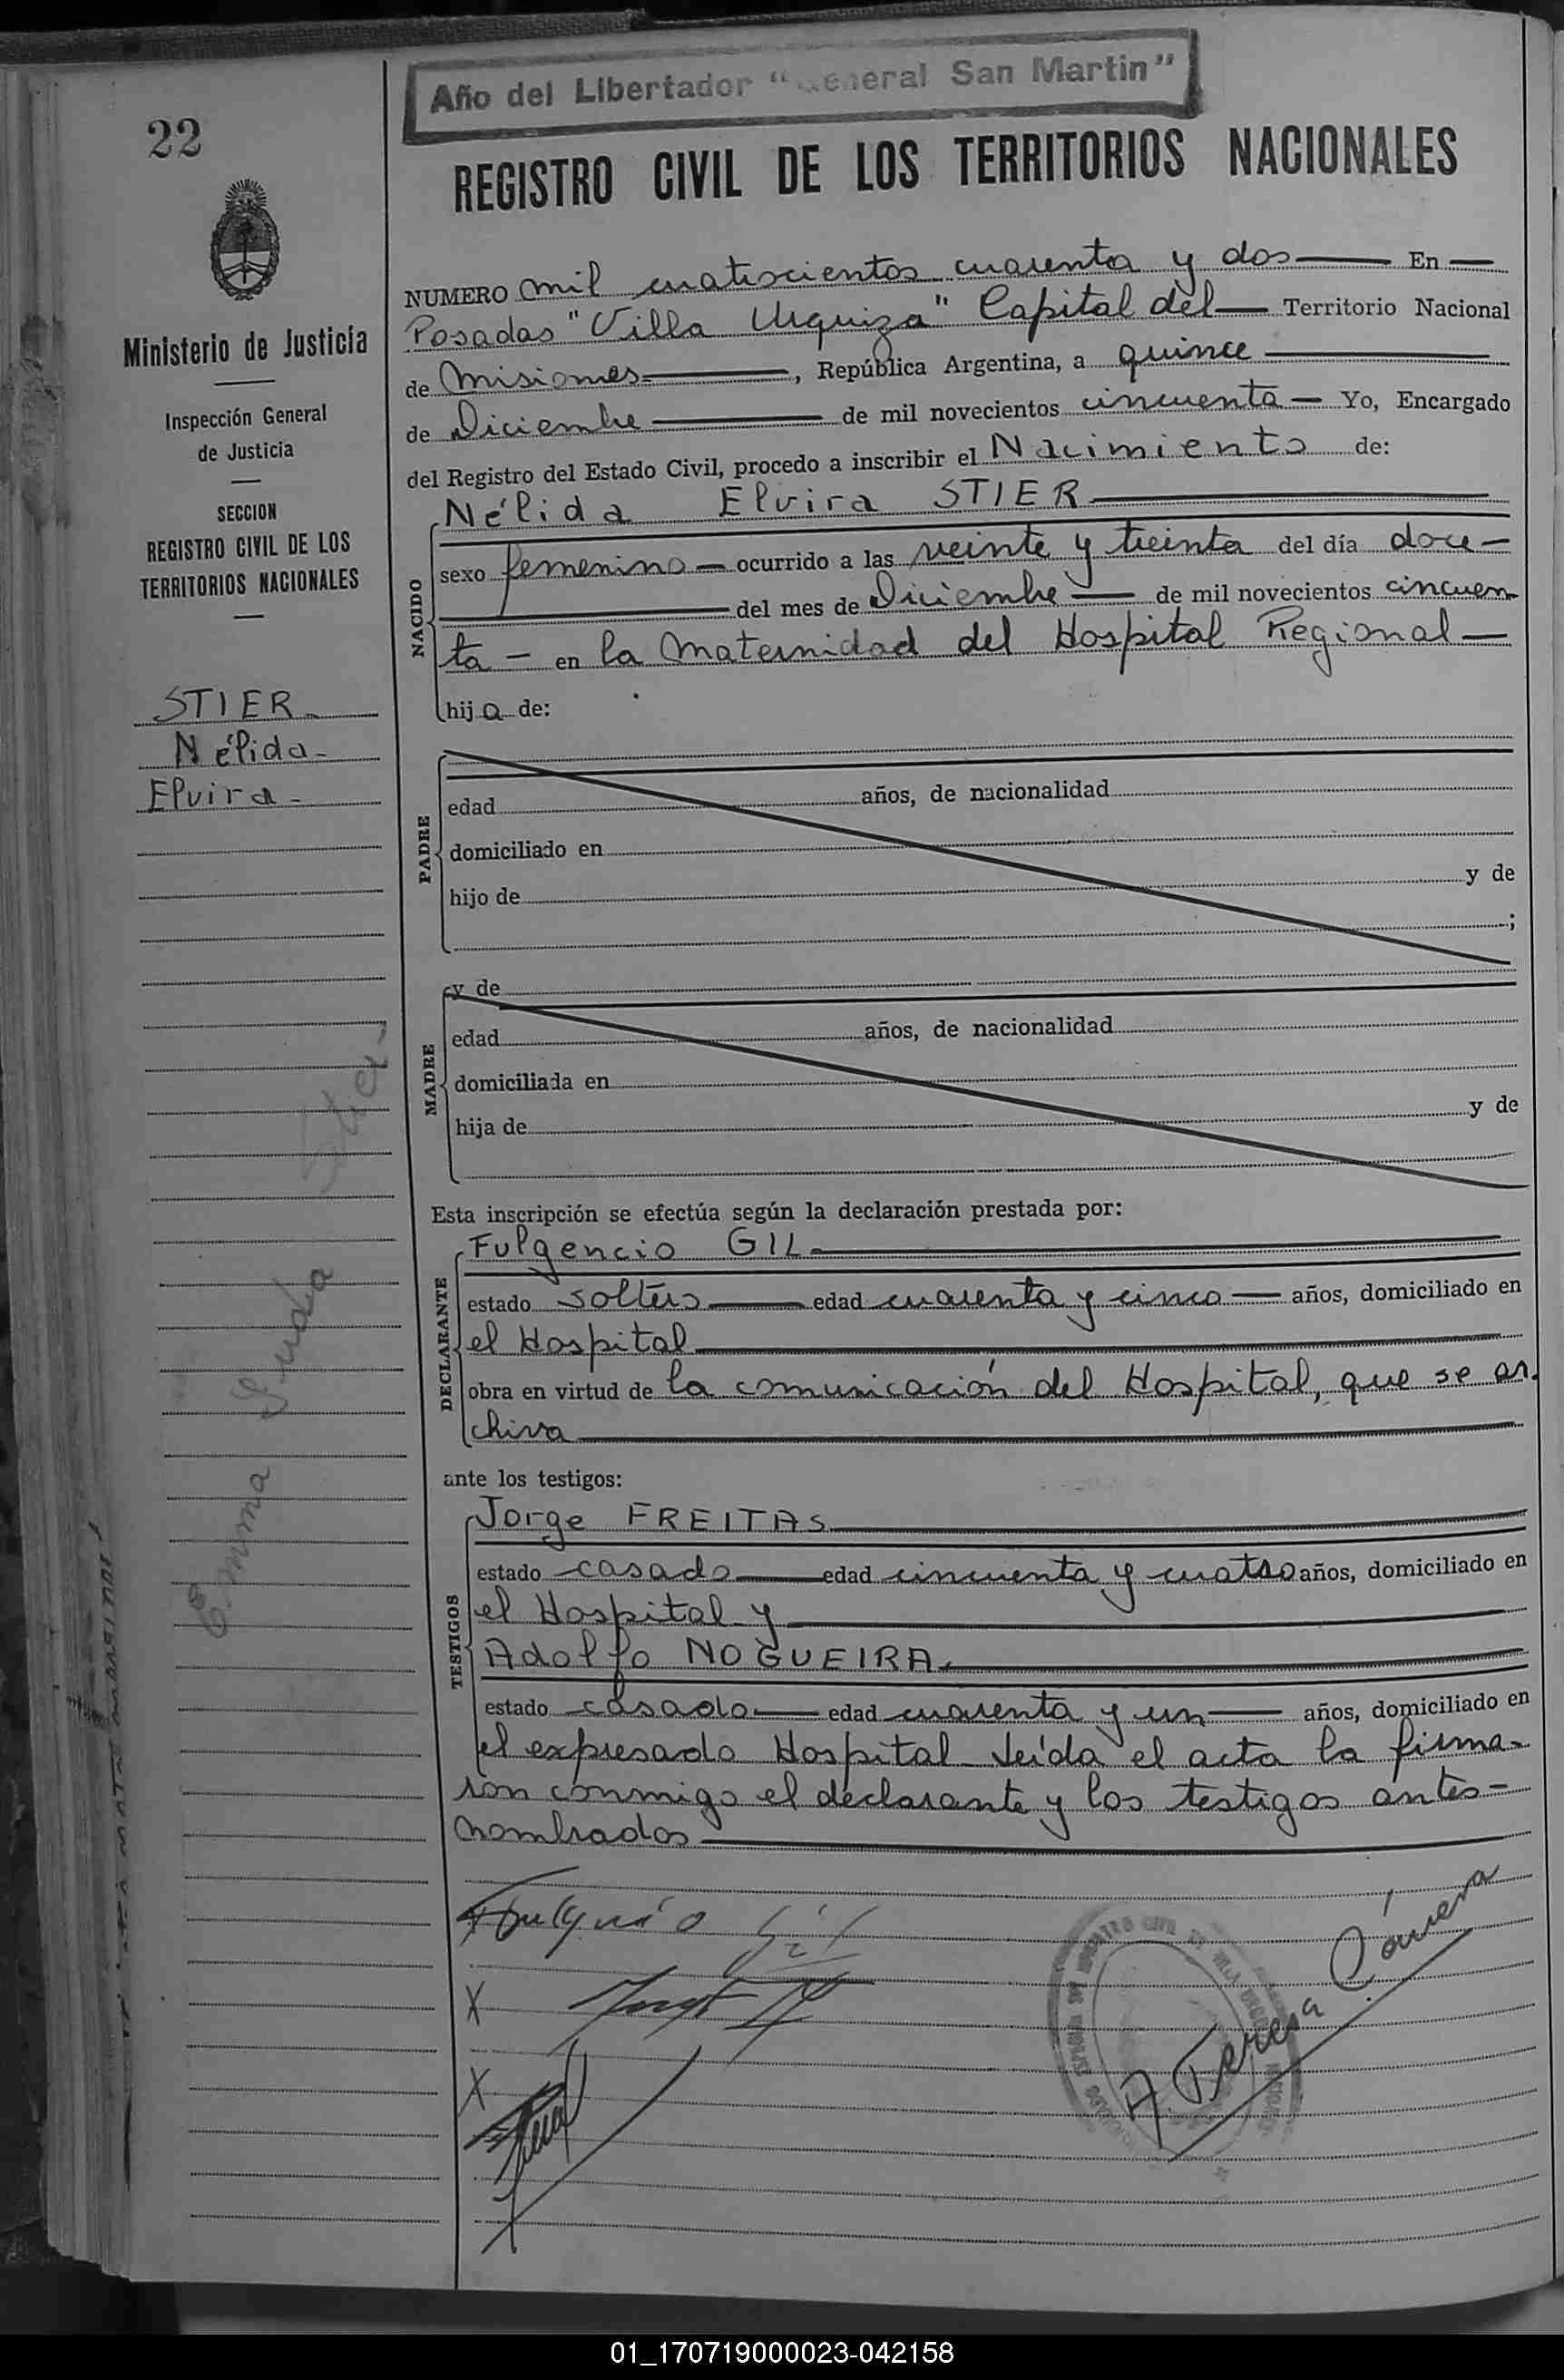 Año del Libertador "General San Martin"
22
REGISTRO CIVIL DE LOS TERRITORIOS NACIONALES
Ministerio de Justicia
Inspección General
de Justicia
SECCION
REGISTRO CIVIL DE LOS
TERRITORIOS NACIONALES
STIER.
Nélida-
Elvira-
Emma Stier-
NUMERO mil cuatrocientos cuarenta y dos — En —
Posadas "Villa Urquiza" Capital del — Territorio Nacional
de Misiones. —, República Argentina, a quince —
de Diciembre — de mil novecientos cincuenta — Yo, Encargado
del Registro del Estado Civil, procedo a inscribir el Nacimiento de:
NACIDO
Nélida Elvira STIER —
sexo femenino — ocurrido a las veinte y treinta del día doce —
— del mes de Diciembre — de mil novecientos cincuen
ta — en la Maternidad del Hospital Regional —
hija de:
PADRE
edad años, de nacionalidad
domiciliado en
hijo de y de
;
MADRE
y de
edad años, de nacionalidad
domiciliada en
hija de y de
Esta inscripción se efectúa según la declaración prestada por:
DECLARANTE
Fulgencio GIL. —
estado soltero — edad cuarenta y cinco — años, domiciliado en
el Hospital —
obra en virtud de la comunicación del Hospital, que se ar-
chiva —
ante los testigos:
TESTIGOS
Jorge FREITAS —
estado casado — edad cincuenta y cuatro años, domiciliado en
el Hospital y —
Adolfo NOGUEIRA. —
estado casado — edad cuarenta y un — años, domiciliado en
el expresado Hospital. Leída el acta la firma-
ron conmigo el declarante y los testigos antes-
nombrados —
Fulgencio Gil
X
X
A. Teresa Cámera
01_170719000023-042158